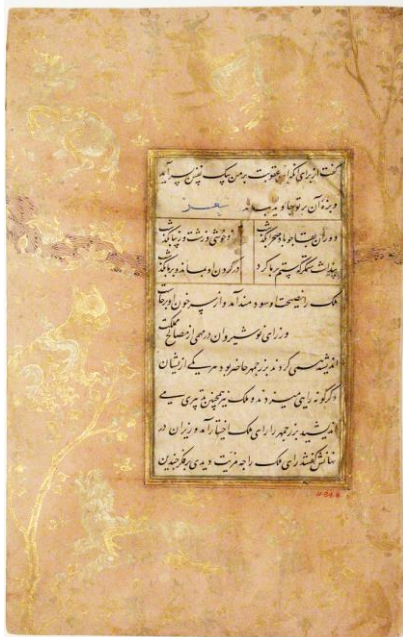 گفت از برای آنکه عقوبت بر من بیک نفس بسر آید
و بزه آن بر تو جاوید بماند شعر
دوران بقا چو باد صحرا بگذشت خوشی و زشت و زیبا بگذشت
پنداشت ستمگر که ستم بر ما کرد در گردن او بماند و بر ما بگذشت
ملک را نصیحت او سودمند آمد و از سر خون او برخاست
وزرای نوشیروان در مهمی از مصالح مملکت
اندیشه همی کردند بزرجمهر حاضر بود هر یکی از ایشان
دگرگونه رایی میزدند و ملک نیز همچنین تدبیری همی
اندیشید بزرجمهر را رای ملک اختیار آمد وزیران در
نهانش گفتند رای ملک را چه مزیت دیدی بر فکر چندین